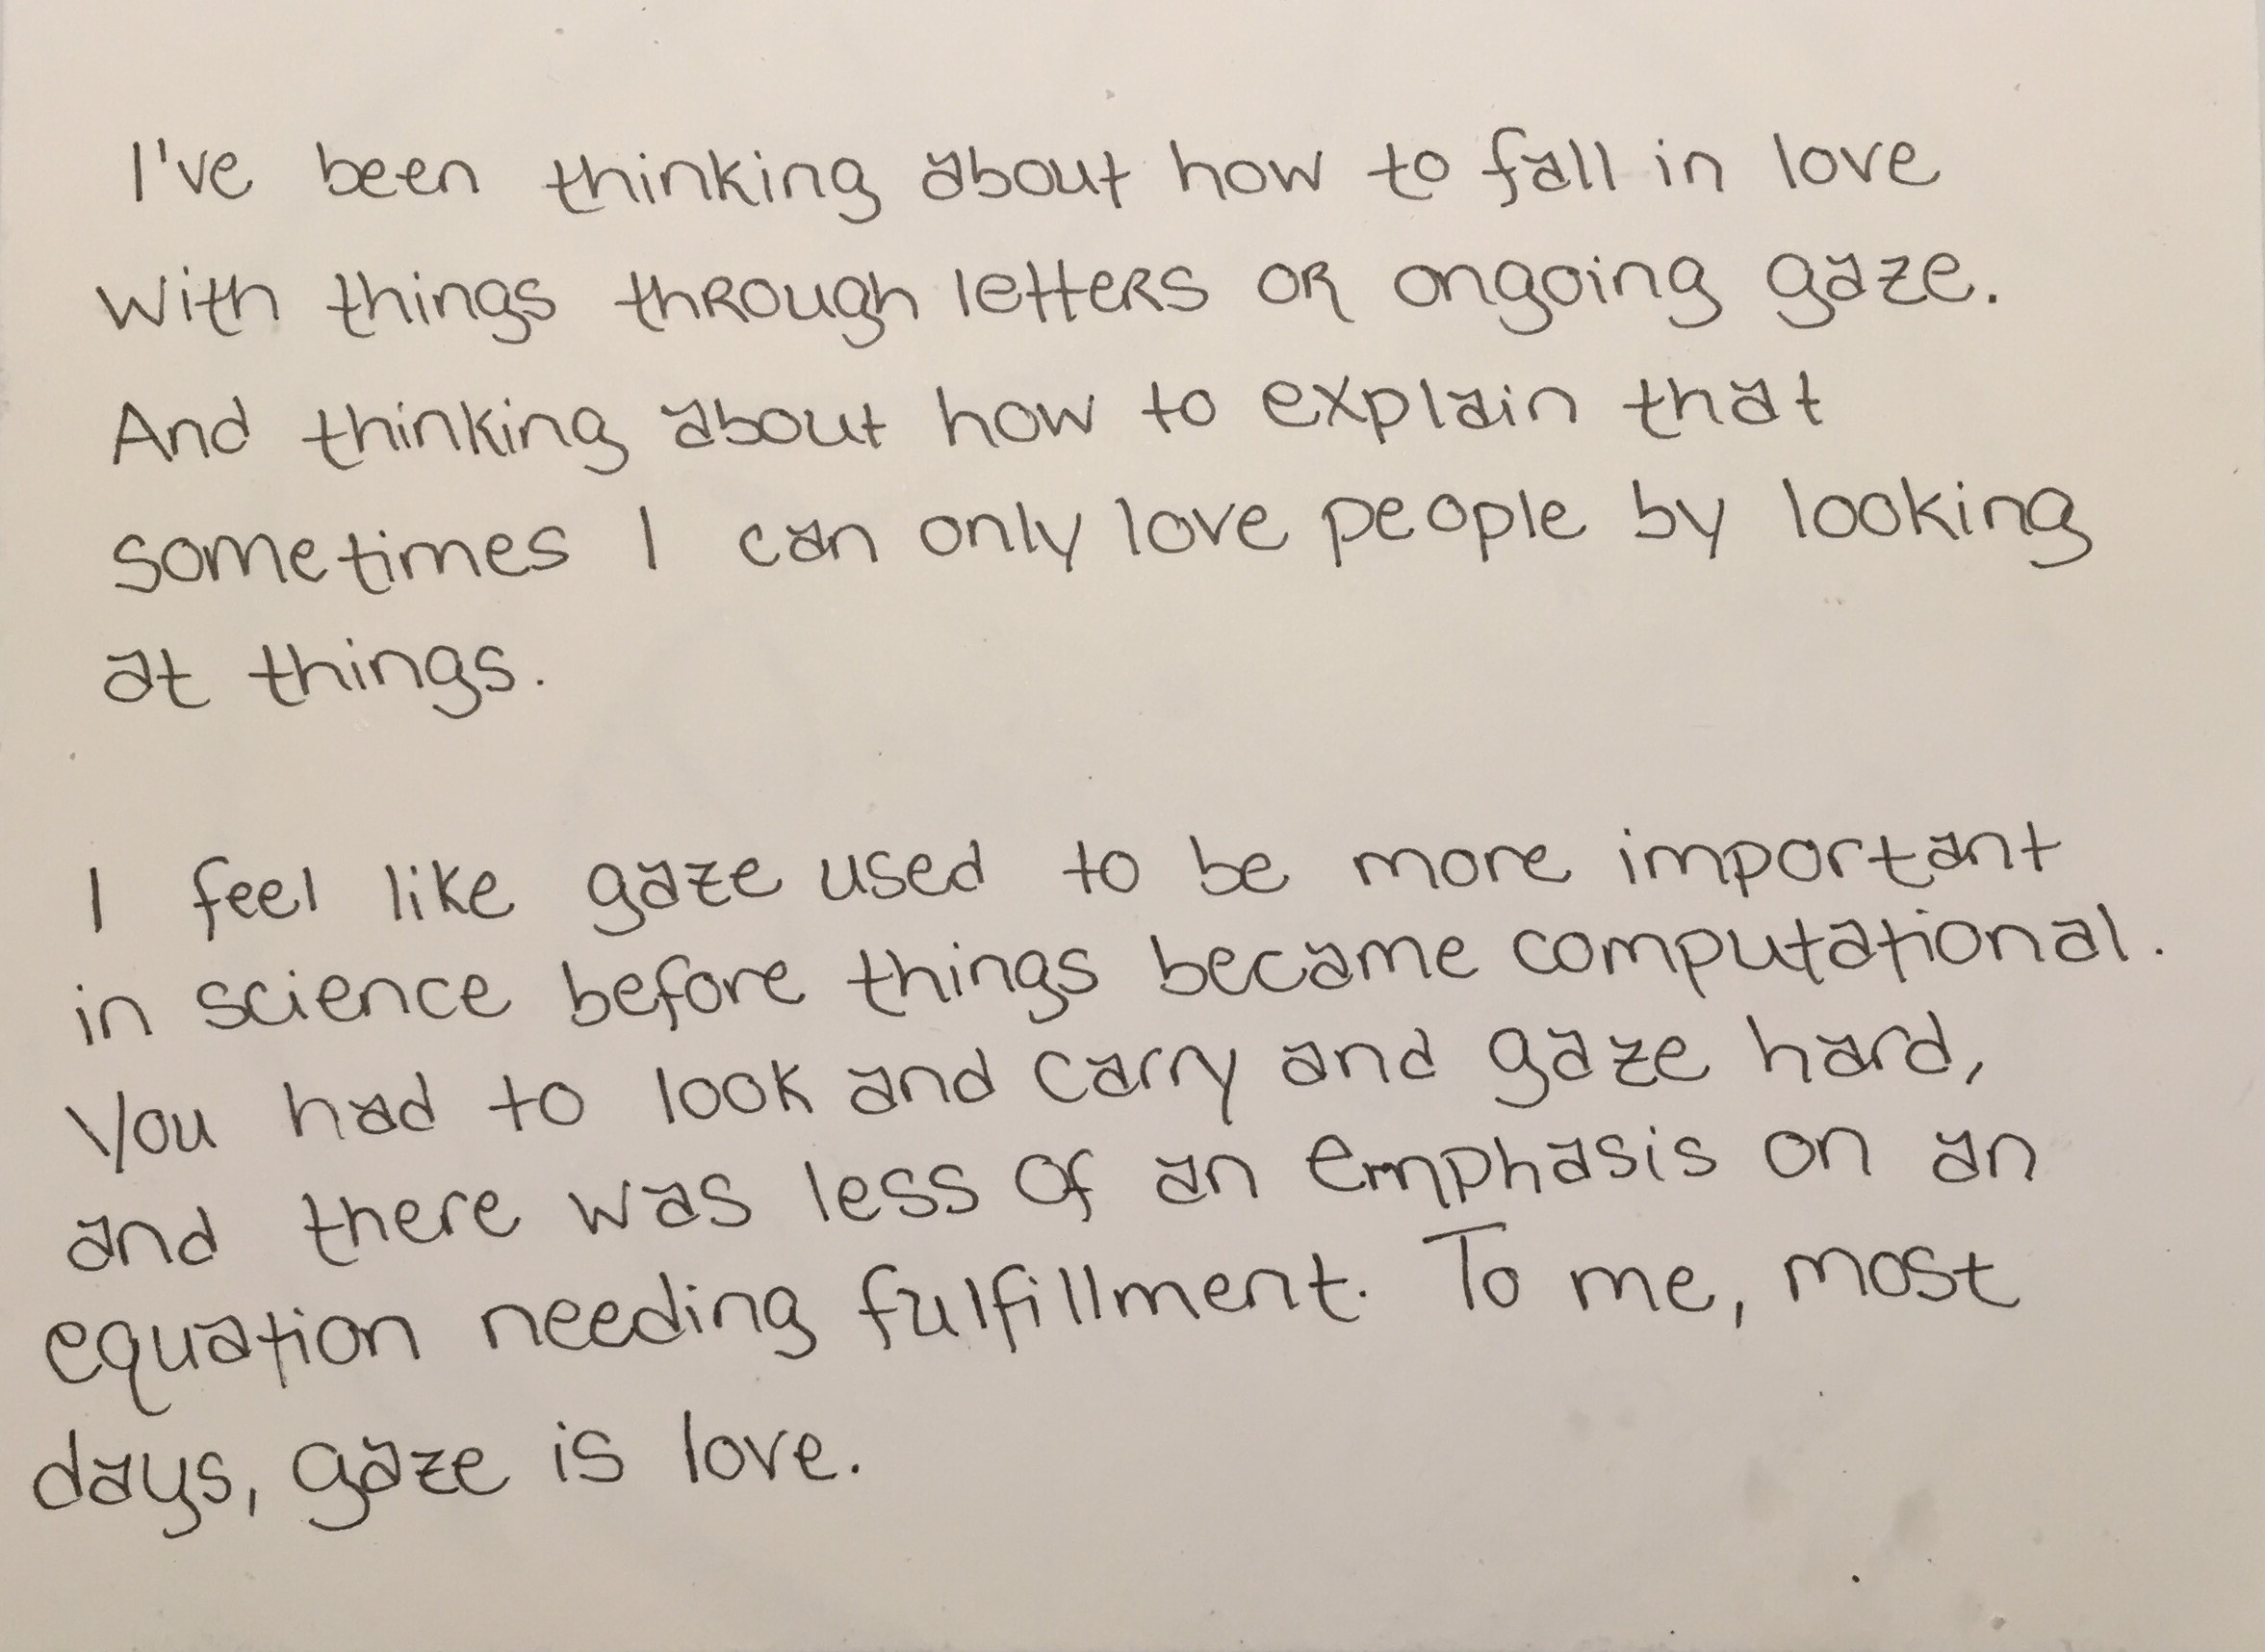 I've been thinking about how to fall in love
with things through letters or ongoing gaze.
And thinking about how to explain that
sometimes I can only love people by looking
at things.
I feel like gaze used to be more important
in science before things became computational.
You had to look and carry and gaze hard,
and there was less of an emphasis on an
equation needing fulfillment. To me, most
days, gaze is love.